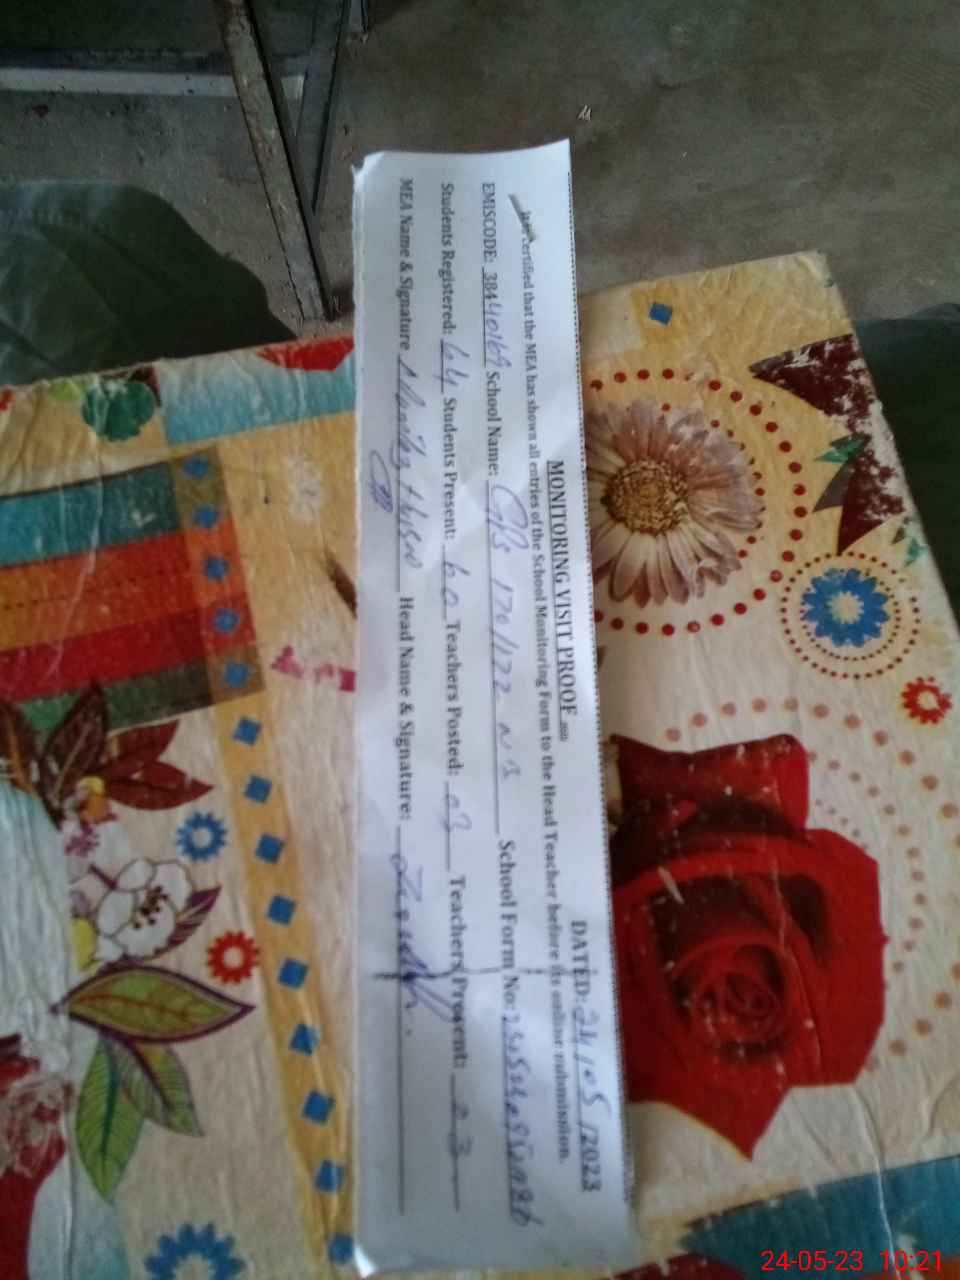 MONITORING VISIT PROOF
DATED: 24/05/2023
It is certified that the MEA has shown all entries of the School Monitoring Form to the Head Teacher before its online submission.
EMISCODE: 38440169 School Name: GPS 170/122 NB School Form No:
Students Registered: 64 Students Present: 60 Teachers Posted: 03 Teachers Present: 03
MEA Name & Signature Head Name & Signature:
24-05-23 10:21